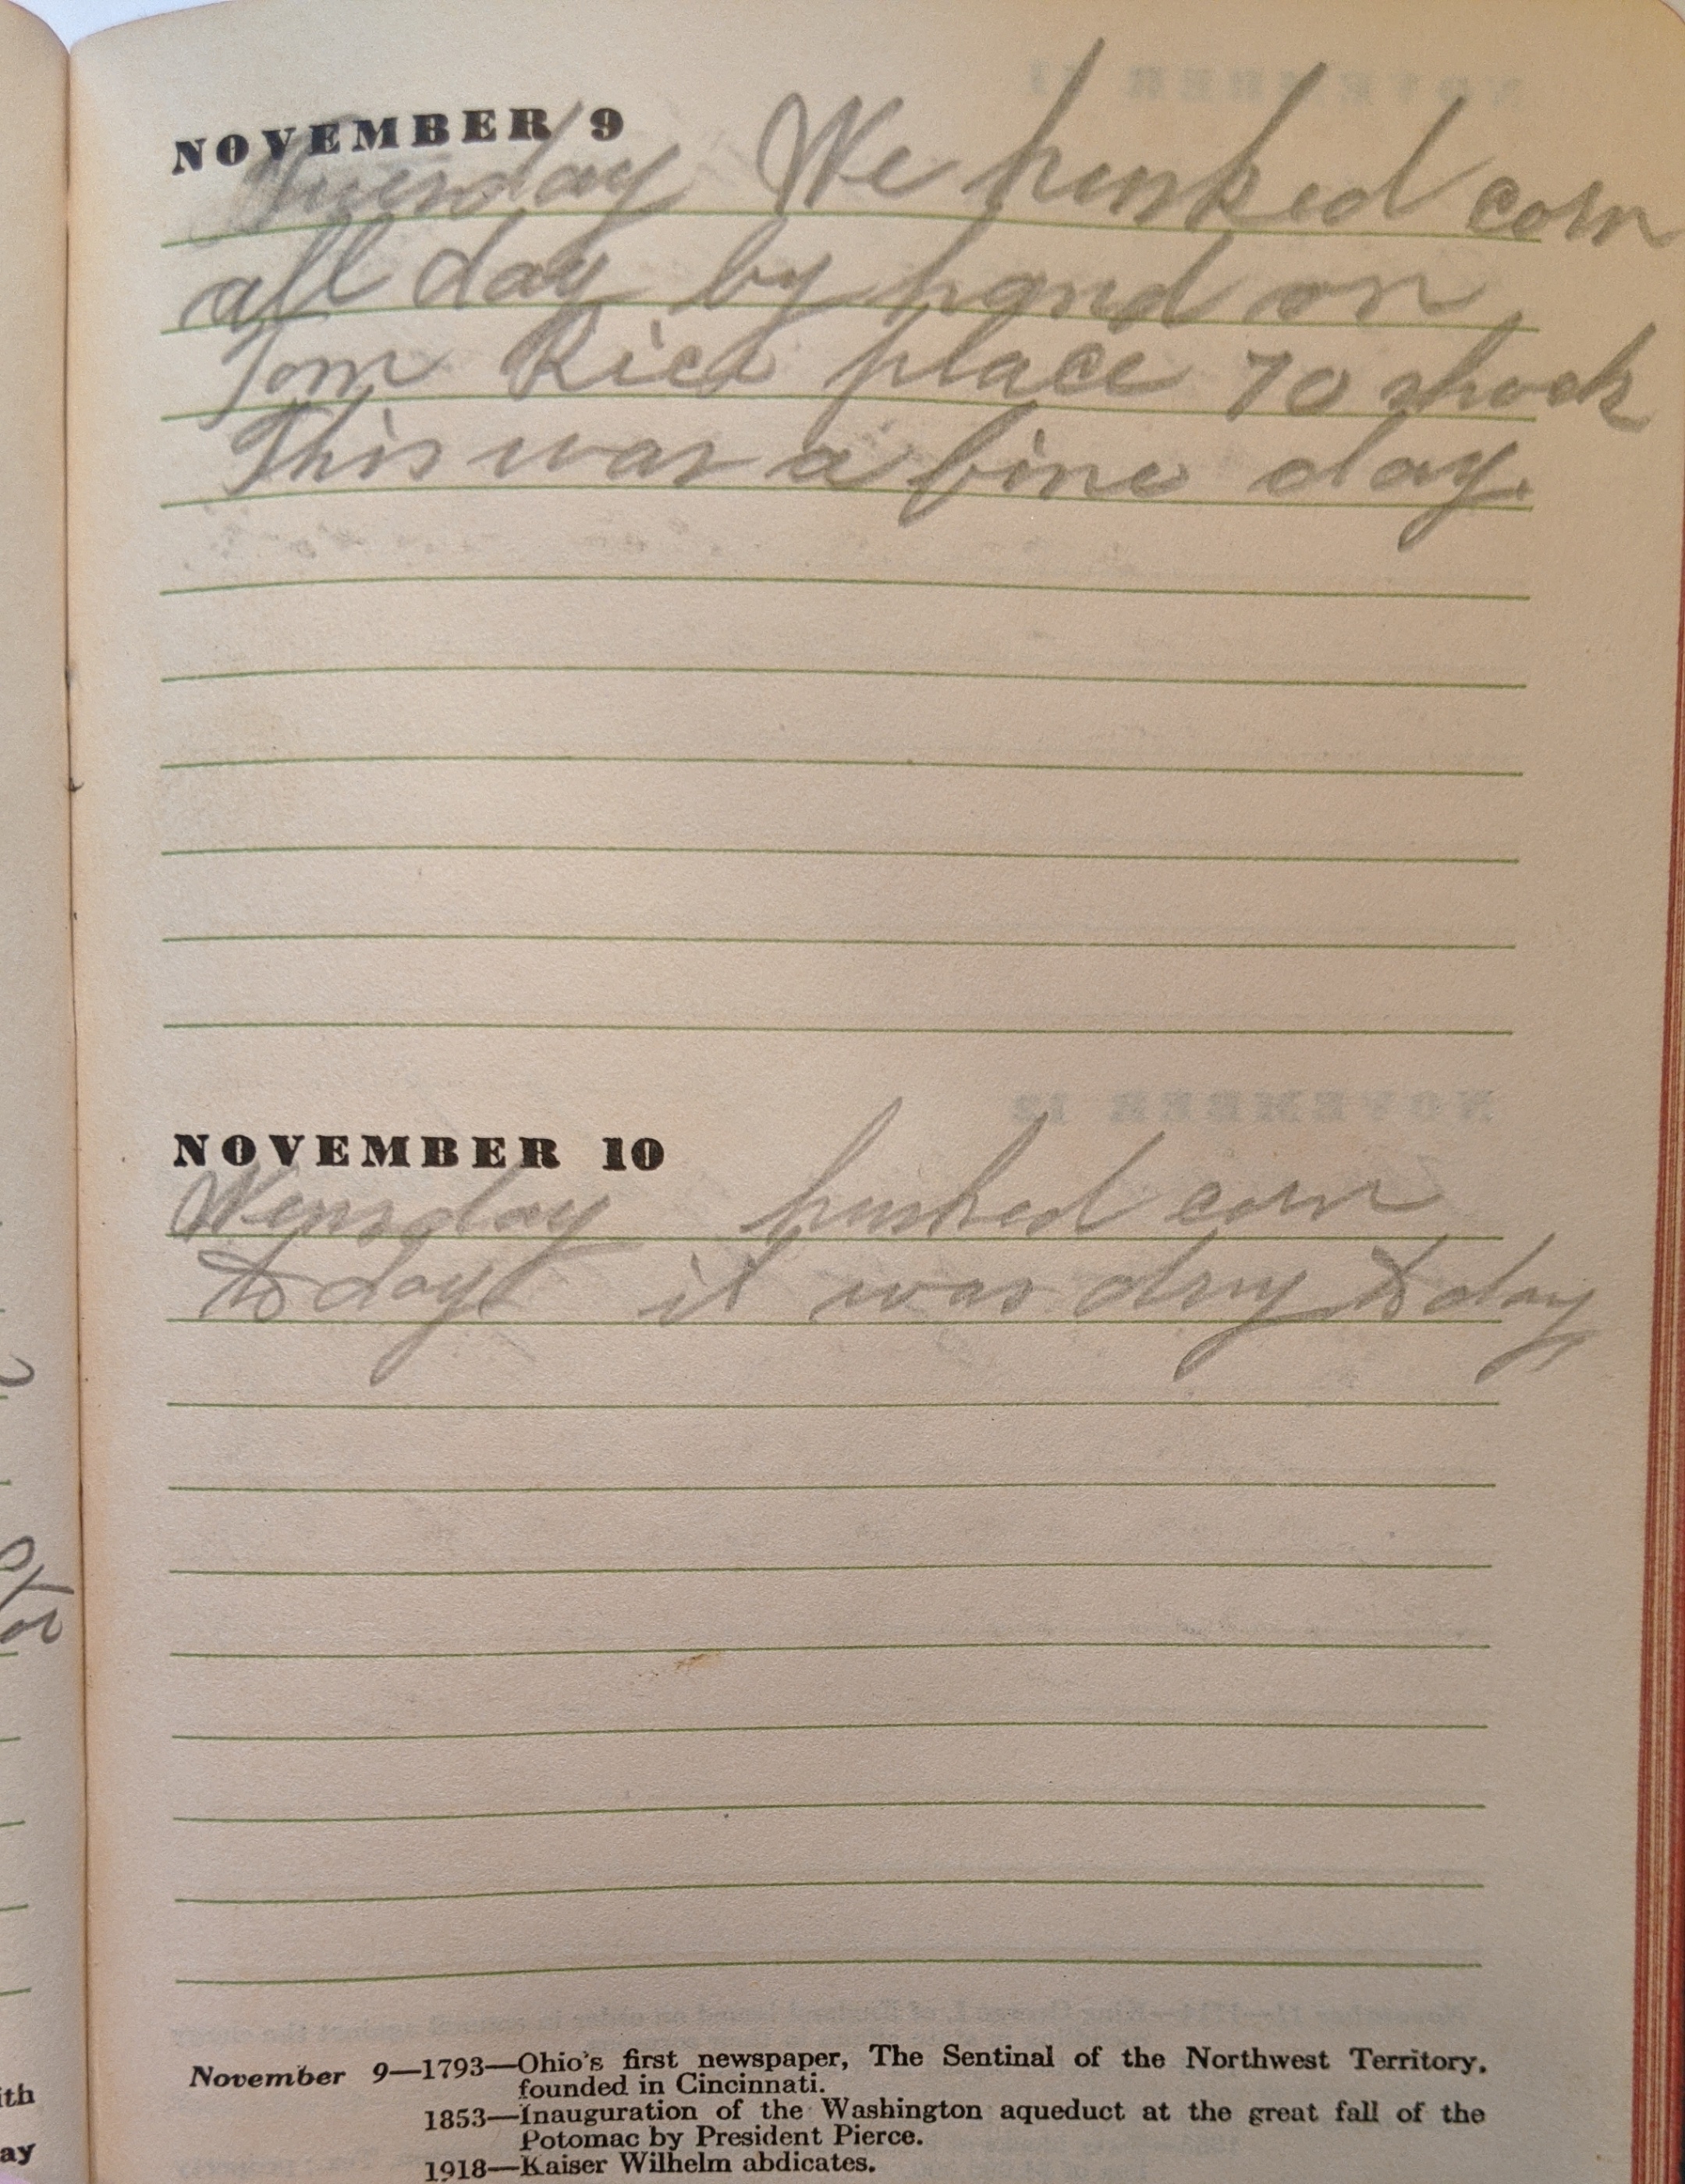 NOVEMBER 9
Tuesday We husked corn
all day by hand on
Tom Rice place 70 shock
This was a fine day.
NOVEMBER 10
Wensday husked corn
to day it was dry to day
November 9—1793—Ohio's first newspaper, The Sentinal of the Northwest Territory,
founded in Cincinnati.
1853—Inauguration of the Washington aqueduct at the great fall of the
Potomac by President Pierce.
1918—Kaiser Wilhelm abdicates.
ith
ay